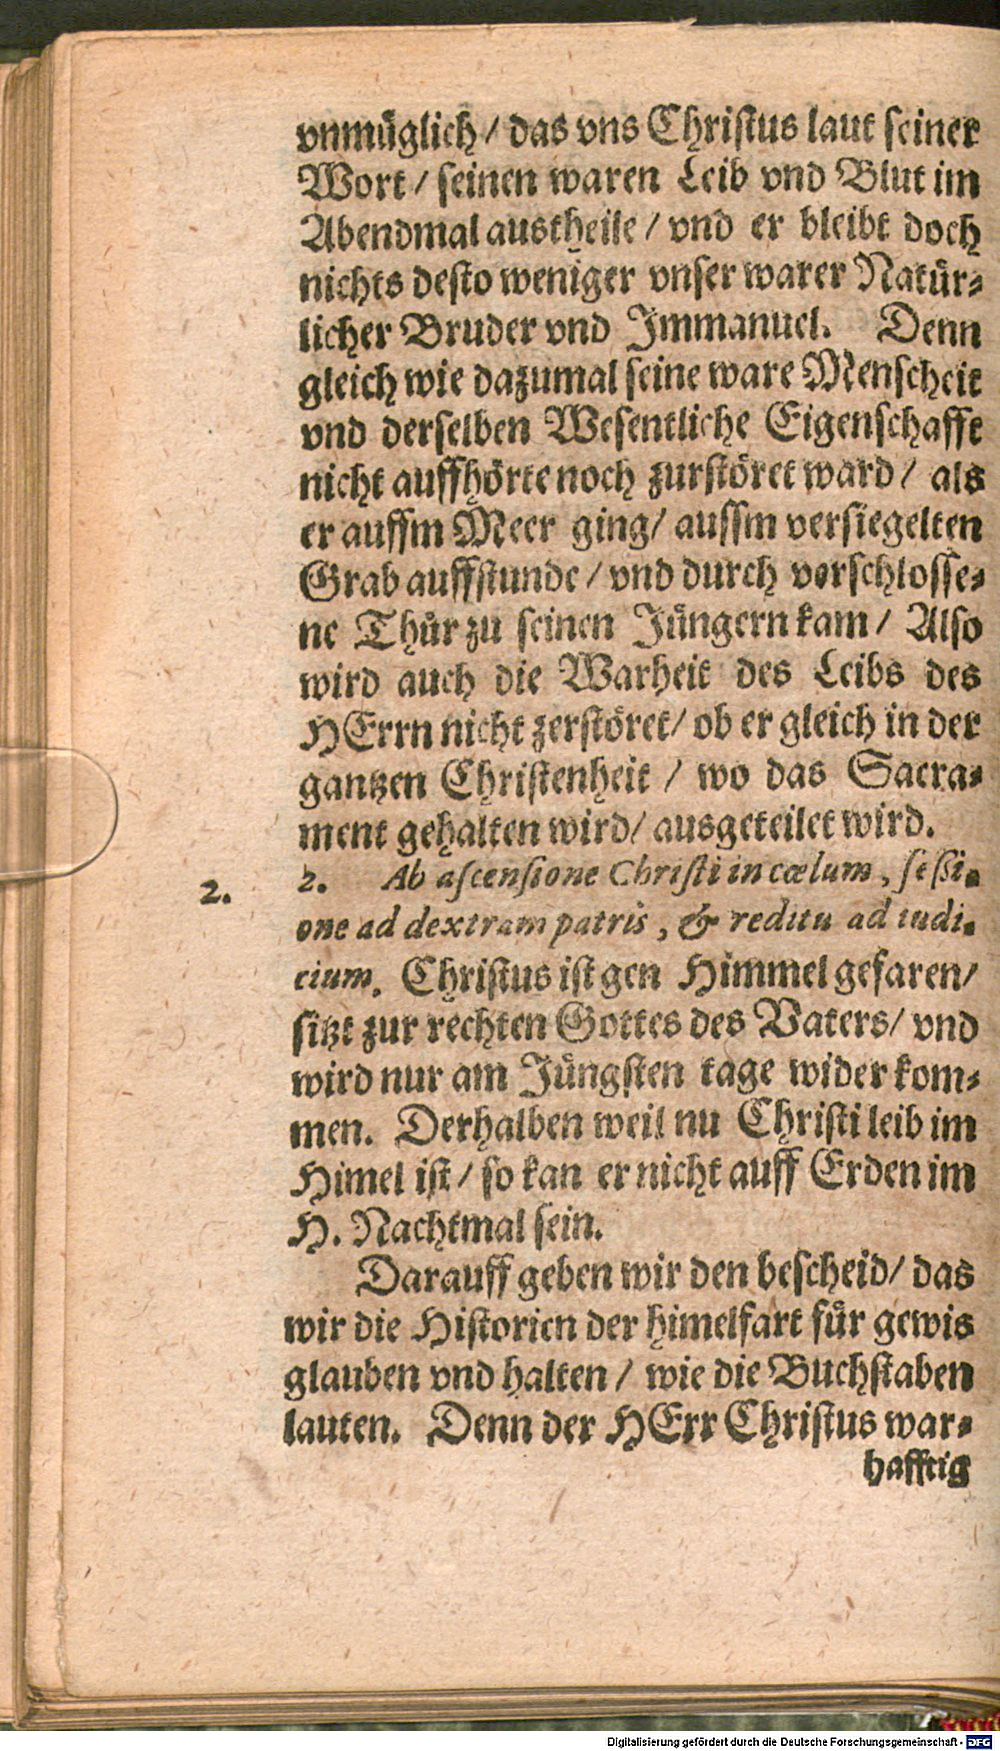 vnmüglich / das vns Christus laut seiner
Wort / seinen waren Leib vnd Blut im
Abendmal austheile / vnd er bleibt doch
nichts desto weniger vnser warer Natür-
licher Bruder vnd Immanuel. Denn
gleich wie dazumal seine ware Menscheit
vnd derselben Wesentliche Eigenschafft
nicht auffhörte noch zurstöret ward / als
er auffm Meer ging / aussm versiegelten
Grab auffstunde / vnd durch verschlosse-
ne Thür zu seinen Jüngern kam / Also
wird auch die Warheit des Leibs des
HErrn nicht zerstöret / ob er gleich in der
gantzen Christenheit / wo das Sacra-
ment gehalten wird / ausgeteilet wird.
2. 2. Ab ascensione Christi in cœlum, seßi-
one ad dextram patris, & reditu ad iudi-
cium. Christus ist gen Himmel gefaren /
sitzt zur rechten Gottes des Vaters / vnd
wird nur am Jüngsten tage wider kom-
men. Derhalben weil nu Christi leib im
Himel ist / so kan er nicht auff Erden im
H. Nachtmal sein.
Darauff geben wir den bescheid / das
wir die Historien der himelfart für gewis
glauben vnd halten / wie die Buchstaben
lauten. Denn der HErr Christus war-
hafftig
Digitalisierung gefördert durch die Deutsche Forschungsgemeinschaft - DFG